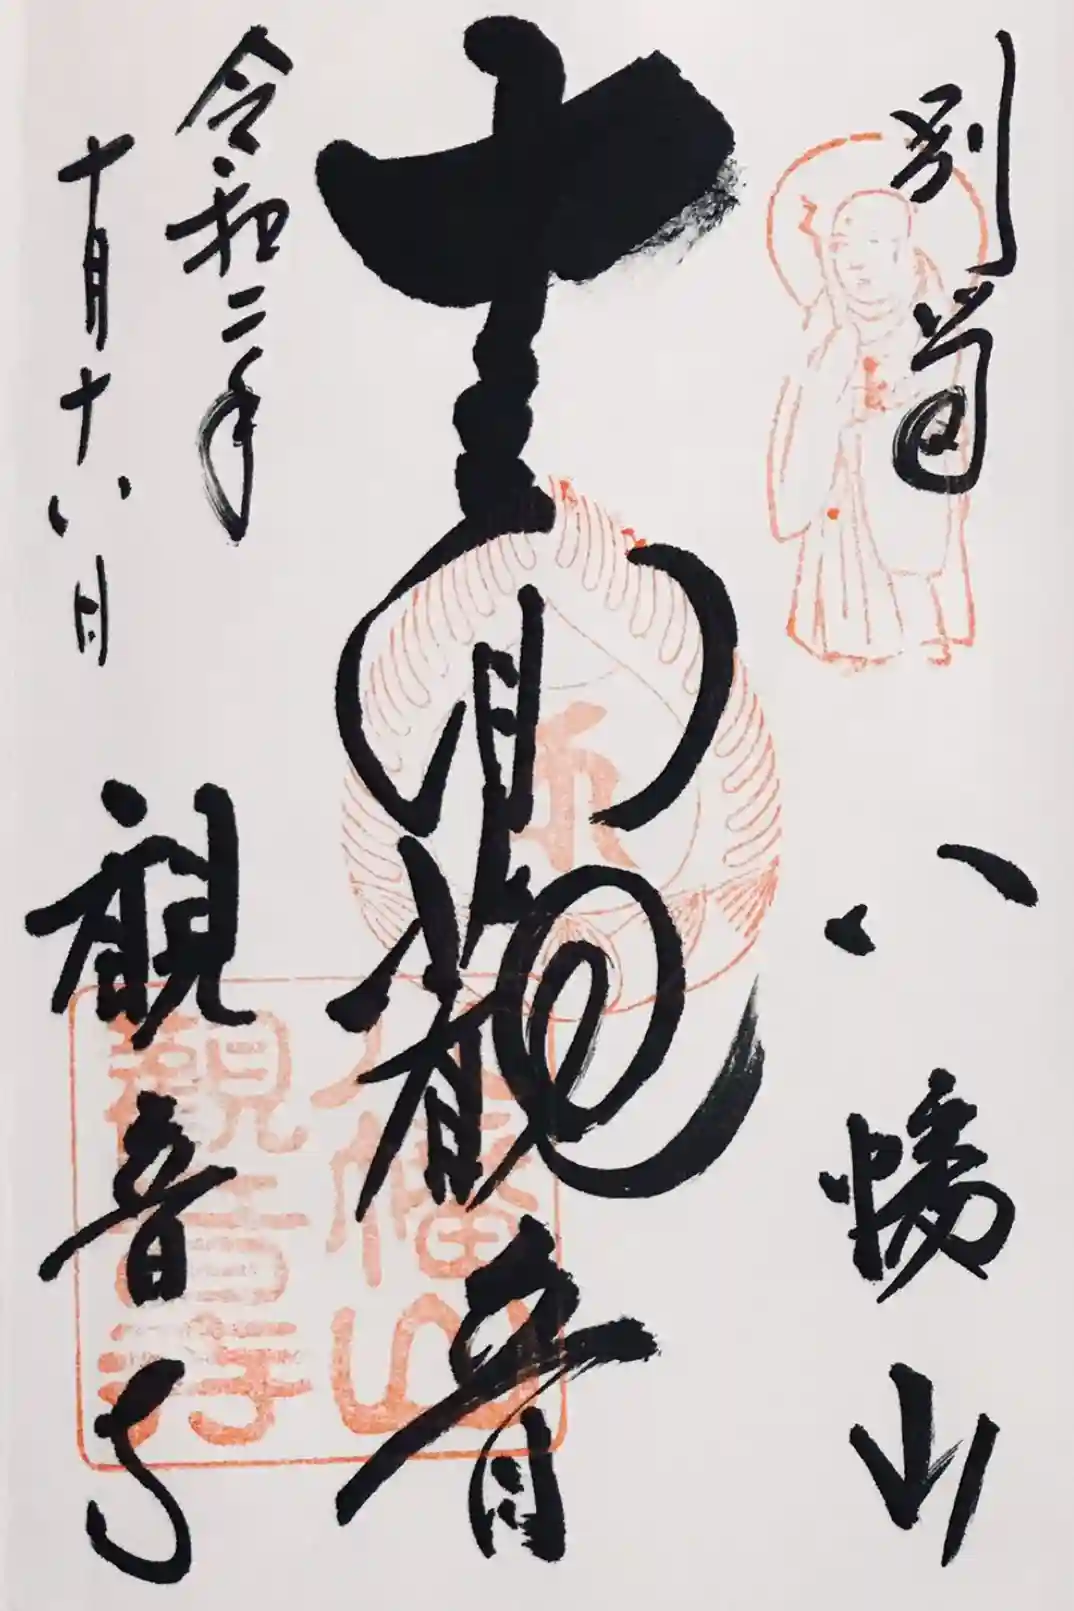 別当
八幡山
十一面観音
令和二年
十月十八日
観音寺
八幡山
観音寺